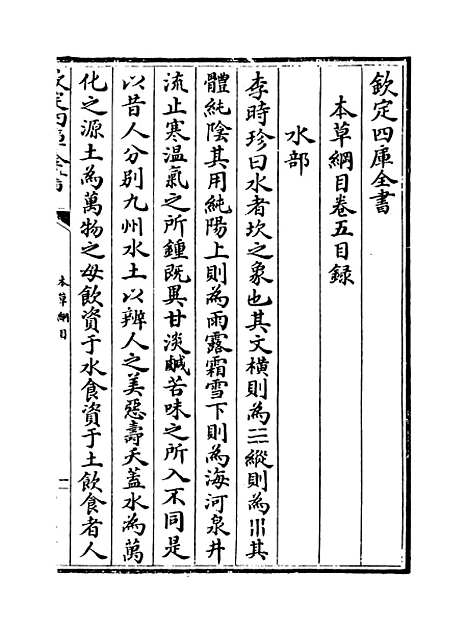 欽定四庫全書
本草綱目卷五目録
水部
李時珍曰水者坎之象也其文橫則為☵縱則為川其
體純陰其用純陽上則為雨露霜雪下則為海河泉井
流止寒溫氣之所鍾既異甘淡鹹苦味之所入不同是
以昔人分別九州水土以辨人之美惡壽夭蓋水為萬
化之源土為萬物之母飲資于水食資于土飲食者人
本草綱目